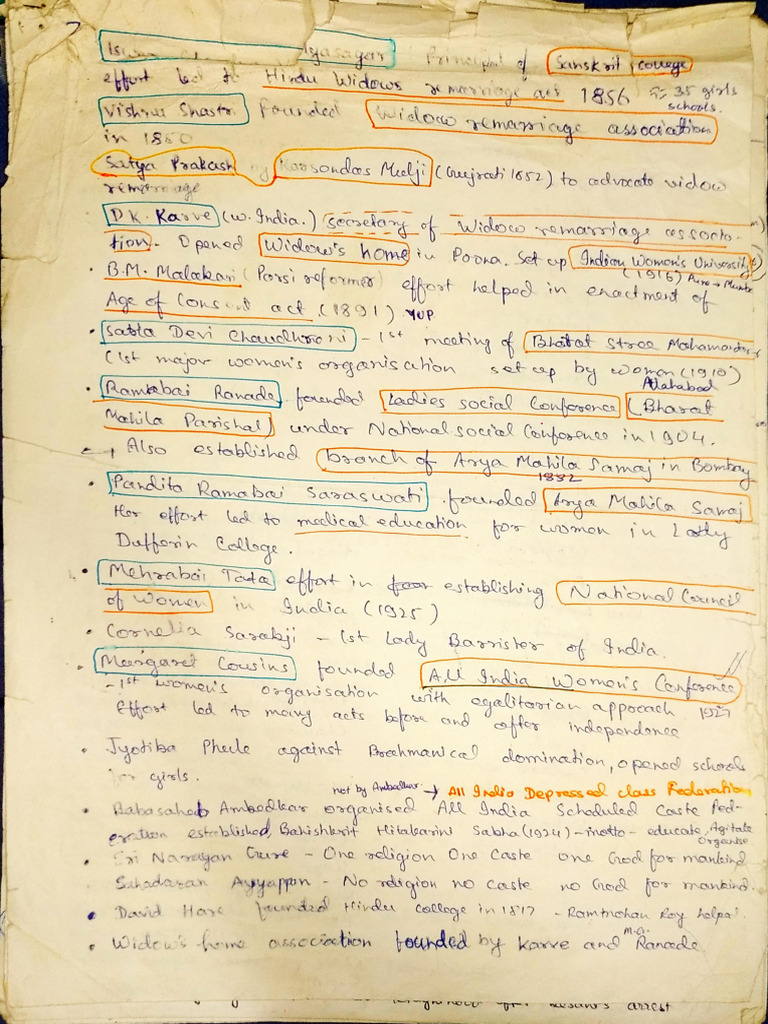 yasagar Principal of Sanskrit college
effort led to Hindu Widows remarriage act 1856 35 girls
schools.
Vishnu Shastri founded Widow remarriage association
in 1850
Satya Prakash by Karsondas Mulji (Gujrati 1852) to advocate widow
remarriage
D.K. Karve (W. India.) secretary of Widow remarriage associa-
tion. Opened Widow's home in Poona. Set up Indian Women's University
(1916)
B.M. Malabari (Parsi reformer) effort helped in enactment of
Age of Consent act (1891)
• Sarla Devi Chaudhrani - 1st meeting of Bharat Stree Mahamandal
(1st major women's organisation set up by women (1910)
Allahabad
• Ramabai Ranade founded Ladies Social Conference (Bharat
Mahila Parishad) under National social Conference in 1904.
Also established branch of Arya Mahila Samaj in Bombay
1882
• Pandita Ramabai Saraswati founded Arya Mahila Samaj
Her effort led to medical education for women in Lady
Dufferin College.
• Mehrabai Tata effort in establishing National Council
of Women in India (1925)
• Cornelia Sarabji - 1st Lady Barrister of India.
Margaret Cousins founded All India Women's Conference
- 1st women's organisation with egalitarian approach 1927
Effort led to many acts before and after independence
• Jyotiba Phule against Brahmanical domination, opened schools
for girls.
not by Ambedkar → All India Depressed class Federation
• Babasaheb Ambedkar organised All India Scheduled Caste Fed-
eration established, Bahishkrit Hitakarini Sabha (1924) - motto - educate, Agitate
Organise
• Sri Narayan Guru - One religion One Caste one God for mankind
Sahadaran Ayyappan - No religion no caste no God for mankind.
• David Hare founded Hindu college in 1817 - Rammohan Roy helped
• Widow's home association founded by Karve and M.G. Ranade
arrest